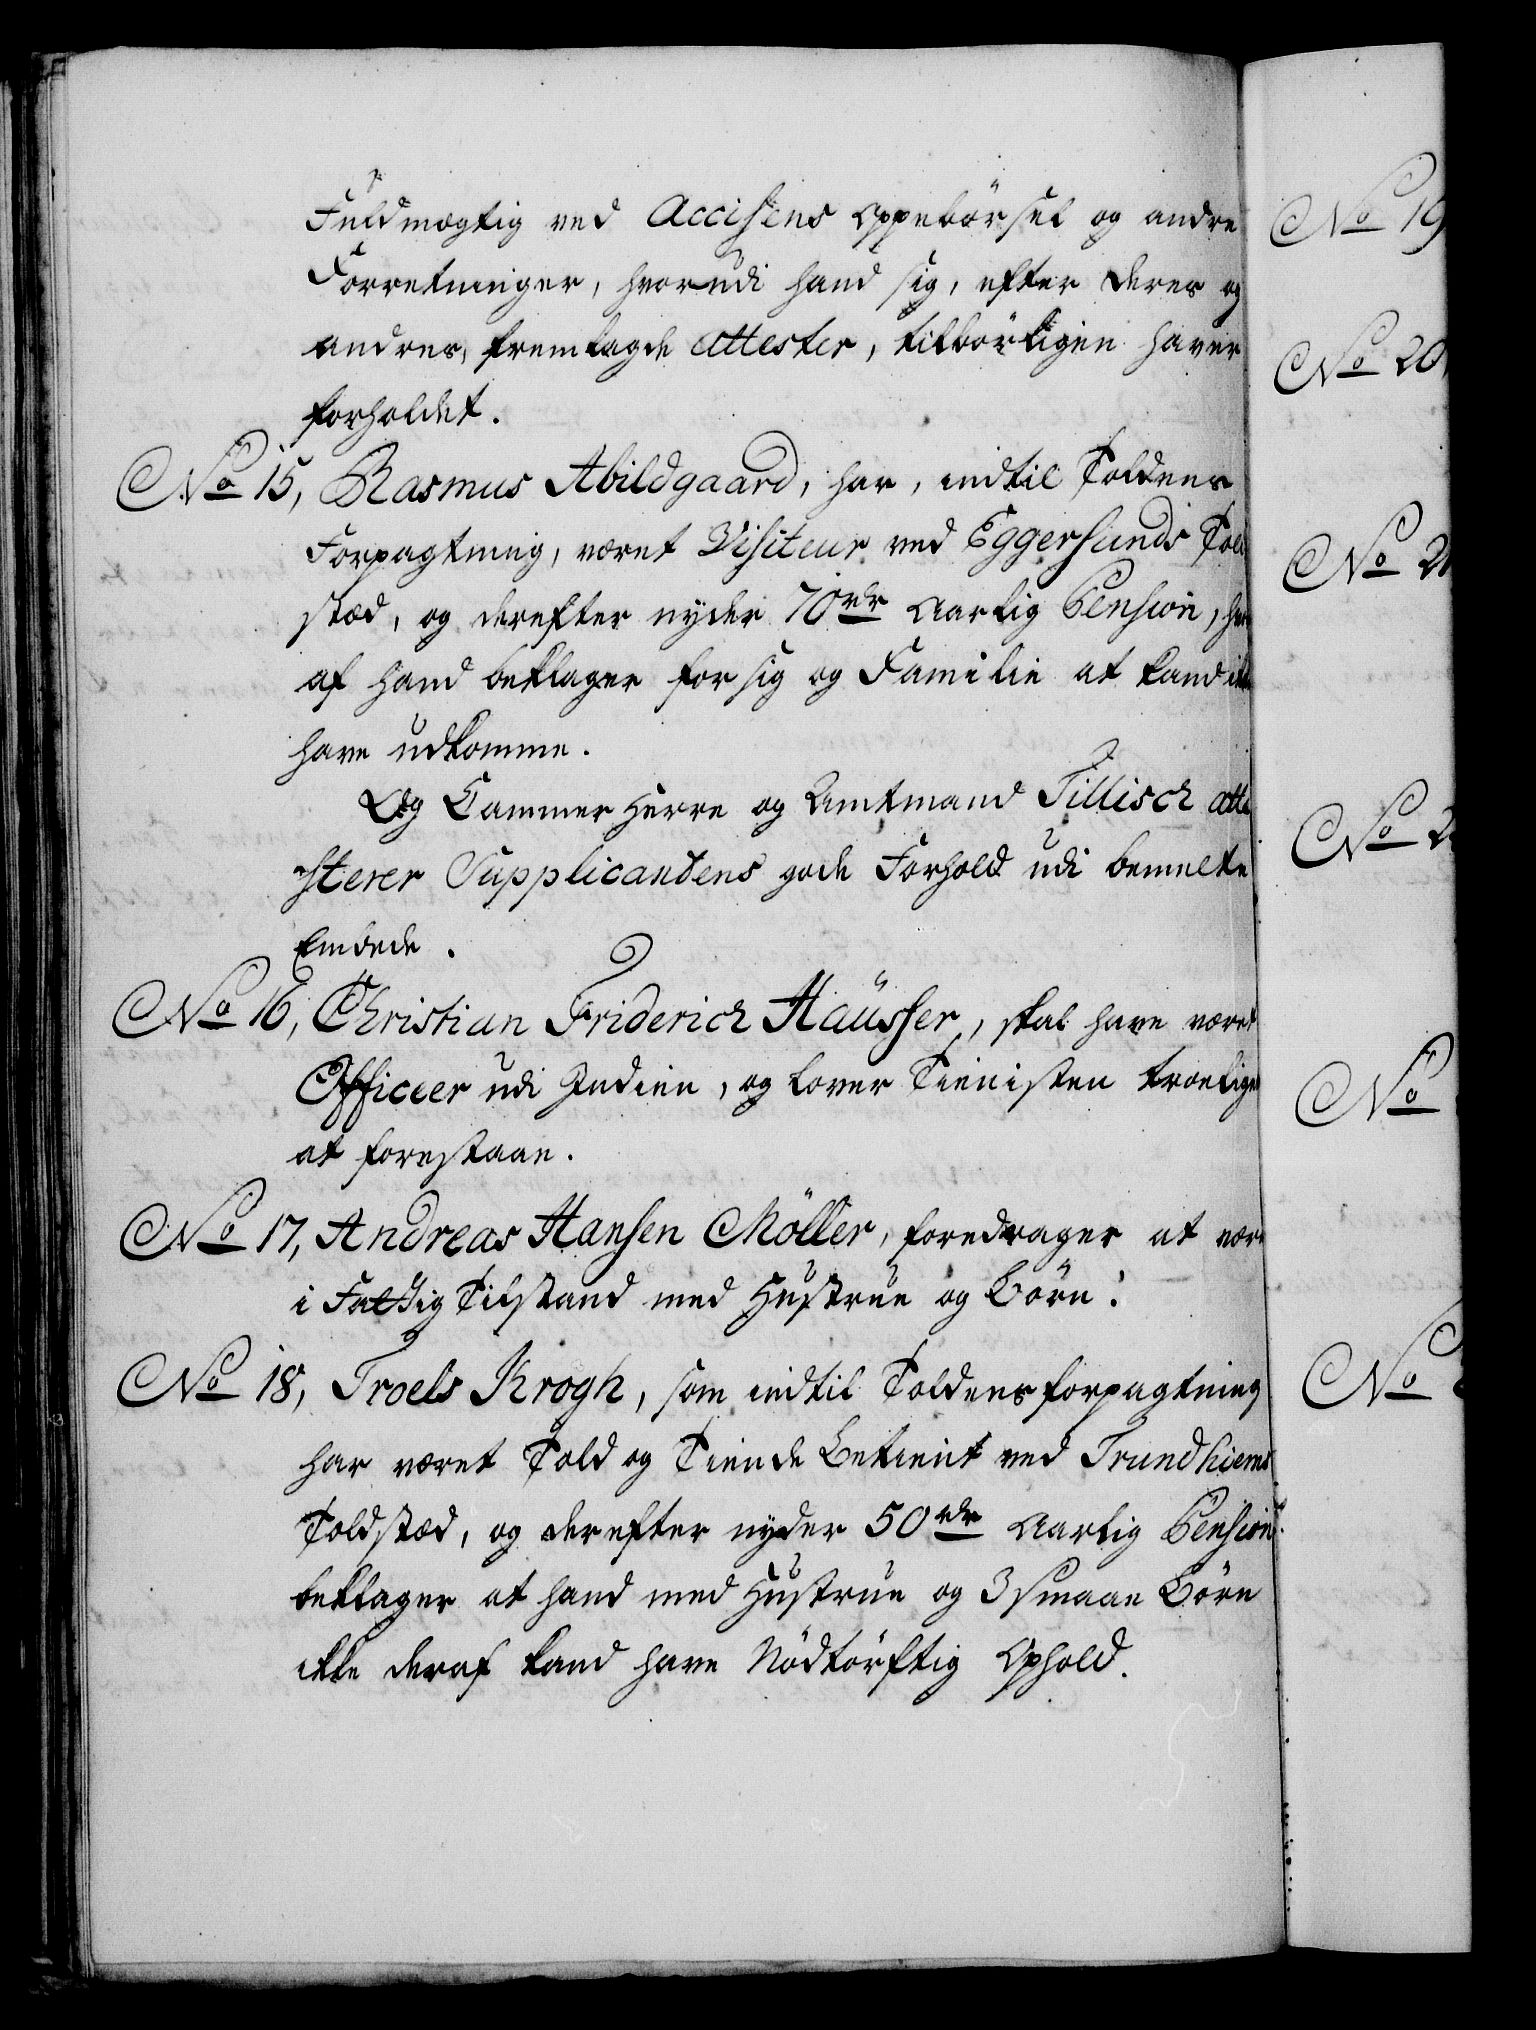 Fuldmægtig ved Accisens Oppebörsel og andre
Forretninger, hvorudi hand sig, efter deres og
andres, fremlagde Attester, tilbörligen haver
forholdet.
No 15, Rasmus Abildgaard, har, indtil Toldens
Forpagtning, været Visiteur ved Eggersunds Told
stæd, og derefter nyder 70 rdr Aarlig Pension, hvor
af hand beklager for sig og Familie at kand ikke
have udkomme.
Og Cammer Herre og Amtmand Tillisch atte
sterer Supplicandens gode Forhold udi bemelte
Embede.
No 16, Christian Friderich Haüsser, skal have været
Officeer udi Indien, og lover Tienisten troeligen
at forestaae.
No 17, Andreas Hansen Möller, foredrager at være
i Fattig Tilstand med Hustrue og Börn.
No 18, Troels Krogh, som indtil Toldens forpagtning
har været Told og Tiende Betient ved Trundhiems
Toldstæd, og derefter nyder 50 rdr Aarlig Pension
beklager at hand med Hustrue og 3 smaae Börn
ikke deraf kand have Nödtörftig Ophold.
No 19
No 20,
No 2
No 2
No
No